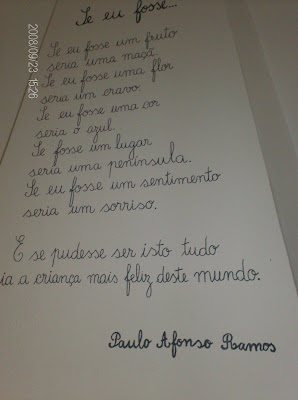 Se eu fosse...
Se eu fosse um fruto
seria uma maçã.
Se eu fosse uma flor
seria um cravo.
Se eu fosse uma cor
seria o azul.
Se fosse um lugar
seria uma península.
Se eu fosse um sentimento
seria um sorriso.
E se pudesse ser isto tudo
ia a criança mais feliz deste mundo.
Paulo Afonso Ramos
2008/09/23 15:26